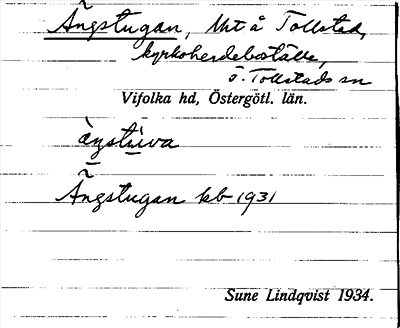 Ängstugan, lht å Tollstad,
kyrkoherdeboställe,
ö. Tollstads sn
Vifolka hd, Östergötl. län.
ängstuva
Ängstugan kb 1931
Sune Lindqvist 1934.